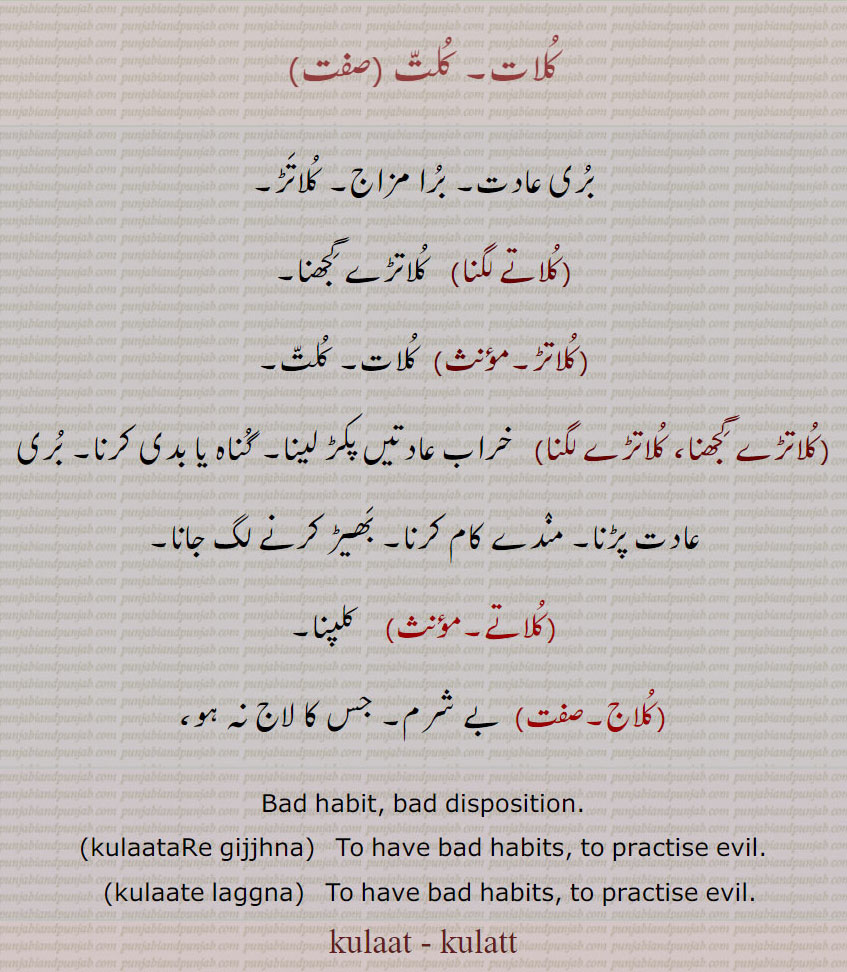 کُلات۔ کُلتّ (صفت)
بُری عادت۔ بُرا مزاج۔ کُلاتَڑ۔
(کُلاتے لگنا) کُلاتڑے گِجھنا۔
(کُلاتڑ۔مؤنث) کُلات۔ کُلتّ۔
(کُلاتڑے گُجھنا، کُلاتڑے لگنا) خراب عادتیں پکڑ لینا۔ گُناہ یا بدی کرنا۔ بُری
عادت پڑنا۔ منْدے کام کرنا۔ بَھیڑ کرنے لگ جانا۔
(کُلاتے۔مؤنث) کلپنا۔
(کُلاج۔صفت) بے شرم۔ جس کا لاج نہ ہو،
Bad habit, bad disposition.
(kulaataRe gijjhna) To have bad habits, to practise evil.
(kulaate laggna) To have bad habits, to practise evil.
kulaat - kulatt